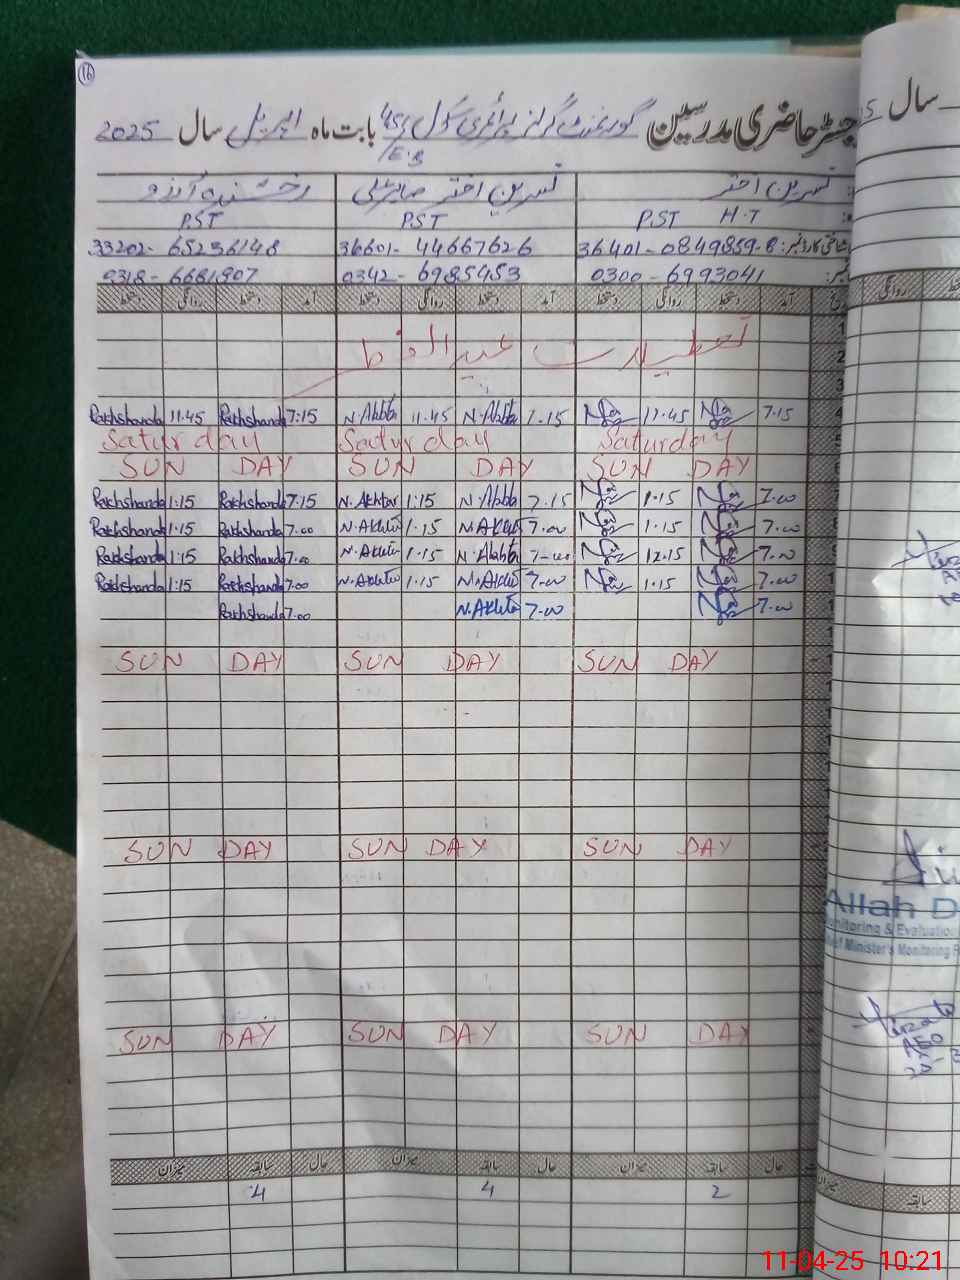 16
رجسٹر حاضری مدرسین گورنمنٹ گرلز پرائمری سکول 451/E.B بابت ماہ اپریل سال 2025
نسرین اختر نسرین اختر صابر علی رخشندہ آرزو
PST H.T PST PST
شناختی کارڈ نمبر: 36401-0849859-8 36601-44667626 33202-65236148
نمبر: 0300-6993041 0342-6985453 0318-6681907
آمد دستخط روانگی دستخط آمد دستخط روانگی دستخط آمد دستخط روانگی دستخط
1
تعطیلات عید الفطر
2
3
Rakhshanda 11.45 Rakhshanda 7:15 N.Akhtar 11.45 N.Akhtar 7.15 11.45 7.15 4
Saturday Saturday Saturday 5
SUN DAY SUN DAY SUN DAY
Rakhshanda 1:15 Rakhshanda 7:15 N.Akhtar 1:15 N.Akhtar 7.15 1.15 7.00 7
Rakhshanda 1:15 Rakhshanda 7.00 N.Akhtar 1.15 N.Akhtar 7.00 1.15 7.00
Rakhshanda 1:15 Rakhshanda 7.00 N.Akhtar 1.15 N.Akhtar 7.00 12.15 7.00
Rakhshanda 1:15 Rakhshanda 7.00 N.Akhtar 1.15 N.Akhtar 7.00 1.15 7.00
Rakhshanda 7.00 N.Akhtar 7.00 7.00
SUN DAY SUN DAY SUN DAY
SUN DAY SUN DAY SUN DAY
SUN DAY SUN DAY SUN DAY
حال سابقہ میزان حال سابقہ میزان حال سابقہ میزان
4 4 2
سال
روانگی
Allah D
Monitoring & Evaluation
Chief Minister's Monitoring
میزان سابقہ
11-04-25 10:21